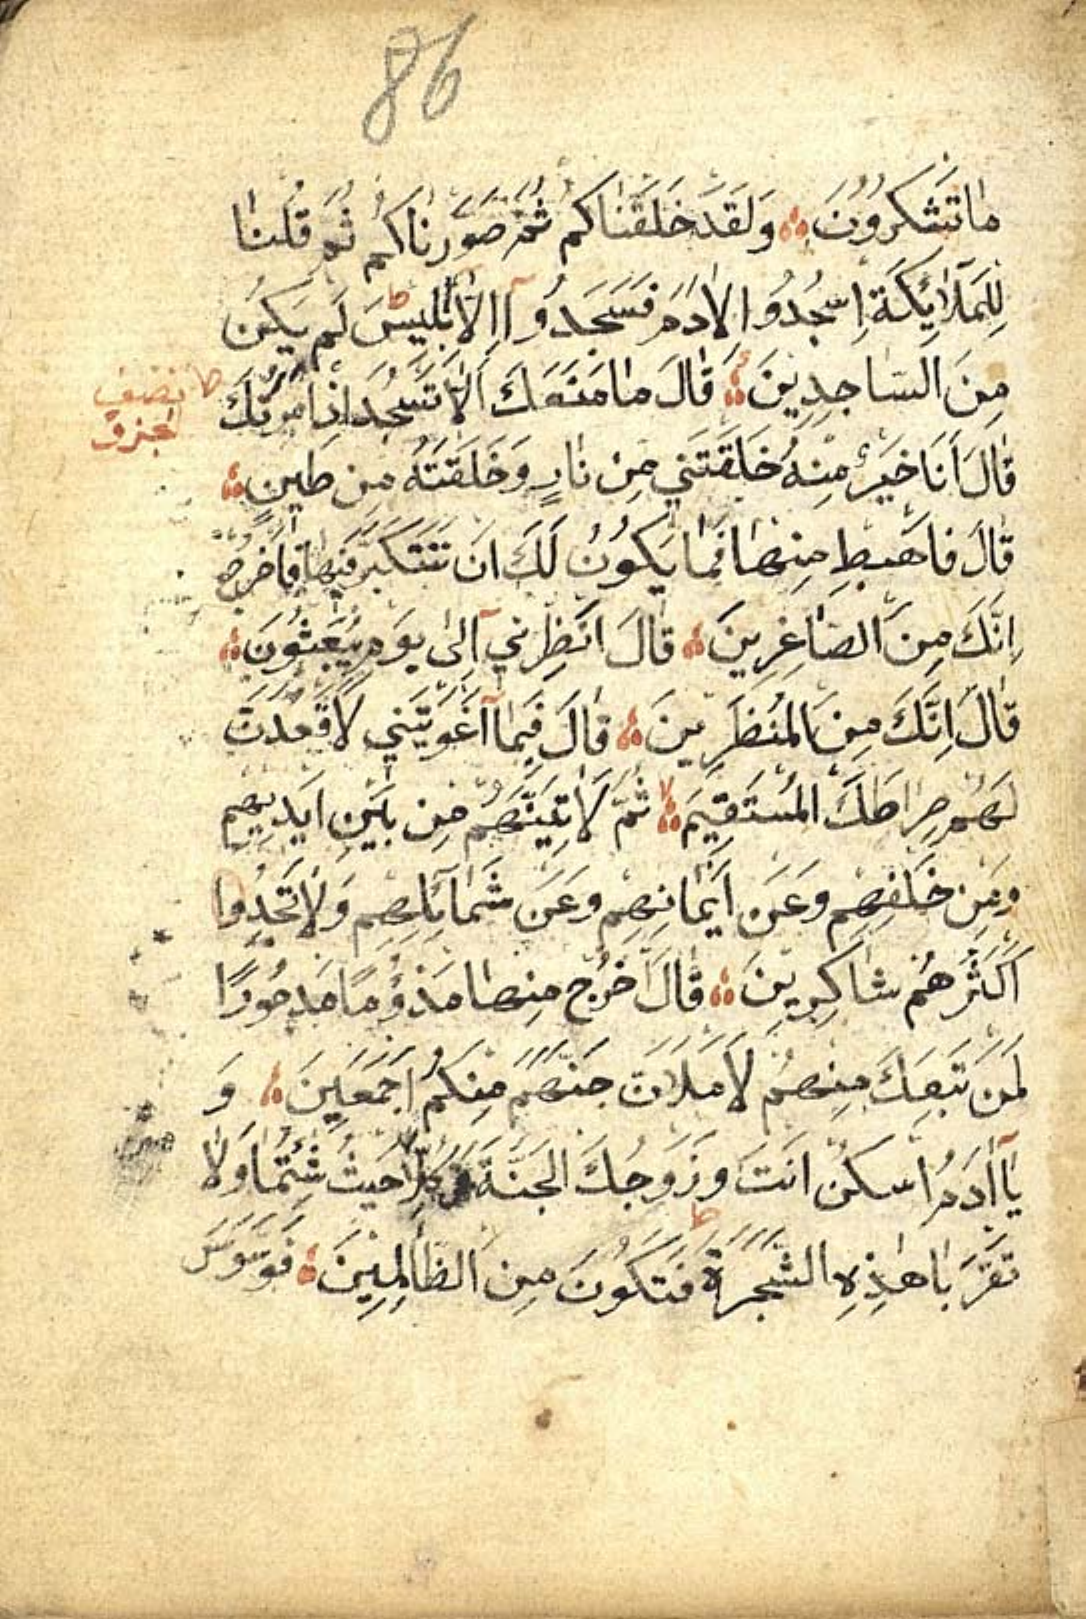 86
مَا تَشْكُرُونَ وَلَقَدْ خَلَقْنَاكُمْ ثُمَّ صَوَّرْنَاكُمْ ثُمَّ قُلْنَا
لِلْمَلَآئِكَةِ اسْجُدُوا لِاٰدَمَ فَسَجَدُوآ اِلَّآ اِبْلِيسَ ط لَمْ يَكُنْ
مِنَ السَّاجِدِينَ قَالَ مَا مَنَعَكَ اَلَّا تَسْجُدَ اِذْ اَمَرْتُكَ ط
نصف
الجزؤ
قَالَ اَنَا خَيْرٌ مِنْهُ خَلَقْتَنِي مِنْ نَارٍ وَخَلَقْتَهُ مِنْ طِينٍ
قَالَ فَاهْبِطْ مِنْهَا فَمَا يَكُونُ لَكَ اَنْ تَتَكَبَّرَ فِيهَا فَاخْرُجْ
اِنَّكَ مِنَ الصَّاغِرِينَ قَالَ اَنْظِرْنِي آلٰى يَوْمِ يُبْعَثُونَ
قَالَ اِنَّكَ مِنَ الْمُنْظَرِينَ قَالَ فَبِمَآ اَغْوَيْتَنِي لَاَقْعُدَنَّ
لَهُمْ صِرَاطَكَ الْمُسْتَقِيمَ لا ثُمَّ لَاٰتِيَنَّهُمْ مِنْ بَيْنِ اَيْدِيهِمْ
وَمِنْ خَلْفِهِمْ وَعَنْ اَيْمَانِهِمْ وَعَنْ شَمَآئِلِهِمْ وَلَا تَجِدُ
اَكْثَرَهُمْ شَاكِرِينَ قَالَ اخْرُجْ مِنْهَا مَذْؤُمًا مَدْحُورًا
لَمَنْ تَبِعَكَ مِنْهُمْ لَاَمْلَاَنَّ جَهَنَّمَ مِنْكُمْ اَجْمَعِينَ وَ
يَآ اٰدَمُ اسْكُنْ اَنْتَ وَزَوْجُكَ الْجَنَّةَ فَكُلَا حَيْثُ شِئْتُمَا وَلَا
تَقْرَبَا هٰذِهِ الشَّجَرَةَ ط فَتَكُونَ مِنَ الظَّالِمِينَ فَوَسْوَسَ